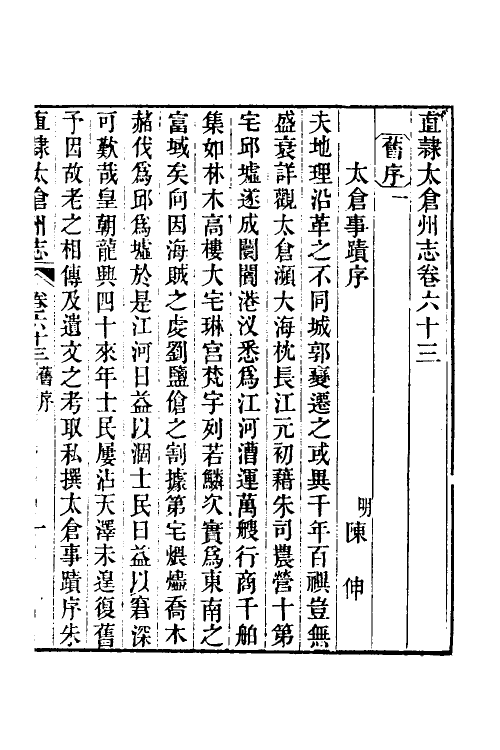 直隸太倉州志卷六十三
舊序一
太倉事蹟序
明陳伸
夫地理沿革之不同城郭變遷之或異千年百禩豈無
盛衰詳觀太倉瀕大海枕長江元初藉朱司農營十第
宅邱墟遂成闤闠港汊悉爲江河漕運萬艘行商千舶
集如林木高樓大宅琳宮梵宇列若鱗次實爲東南之
富域矣向因海賊之虔劉鹽傖之割據第宅煨燼喬木
赭伐爲邱爲墟於是江河日益以涸士民日益以窘深
可歎哉皇朝龍興四十來年士民屢沾天澤未遑復舊
予因故老之相傳及遺文之考取私撰太倉事蹟序朱
直隸太倉州志
卷六十三舊序
一